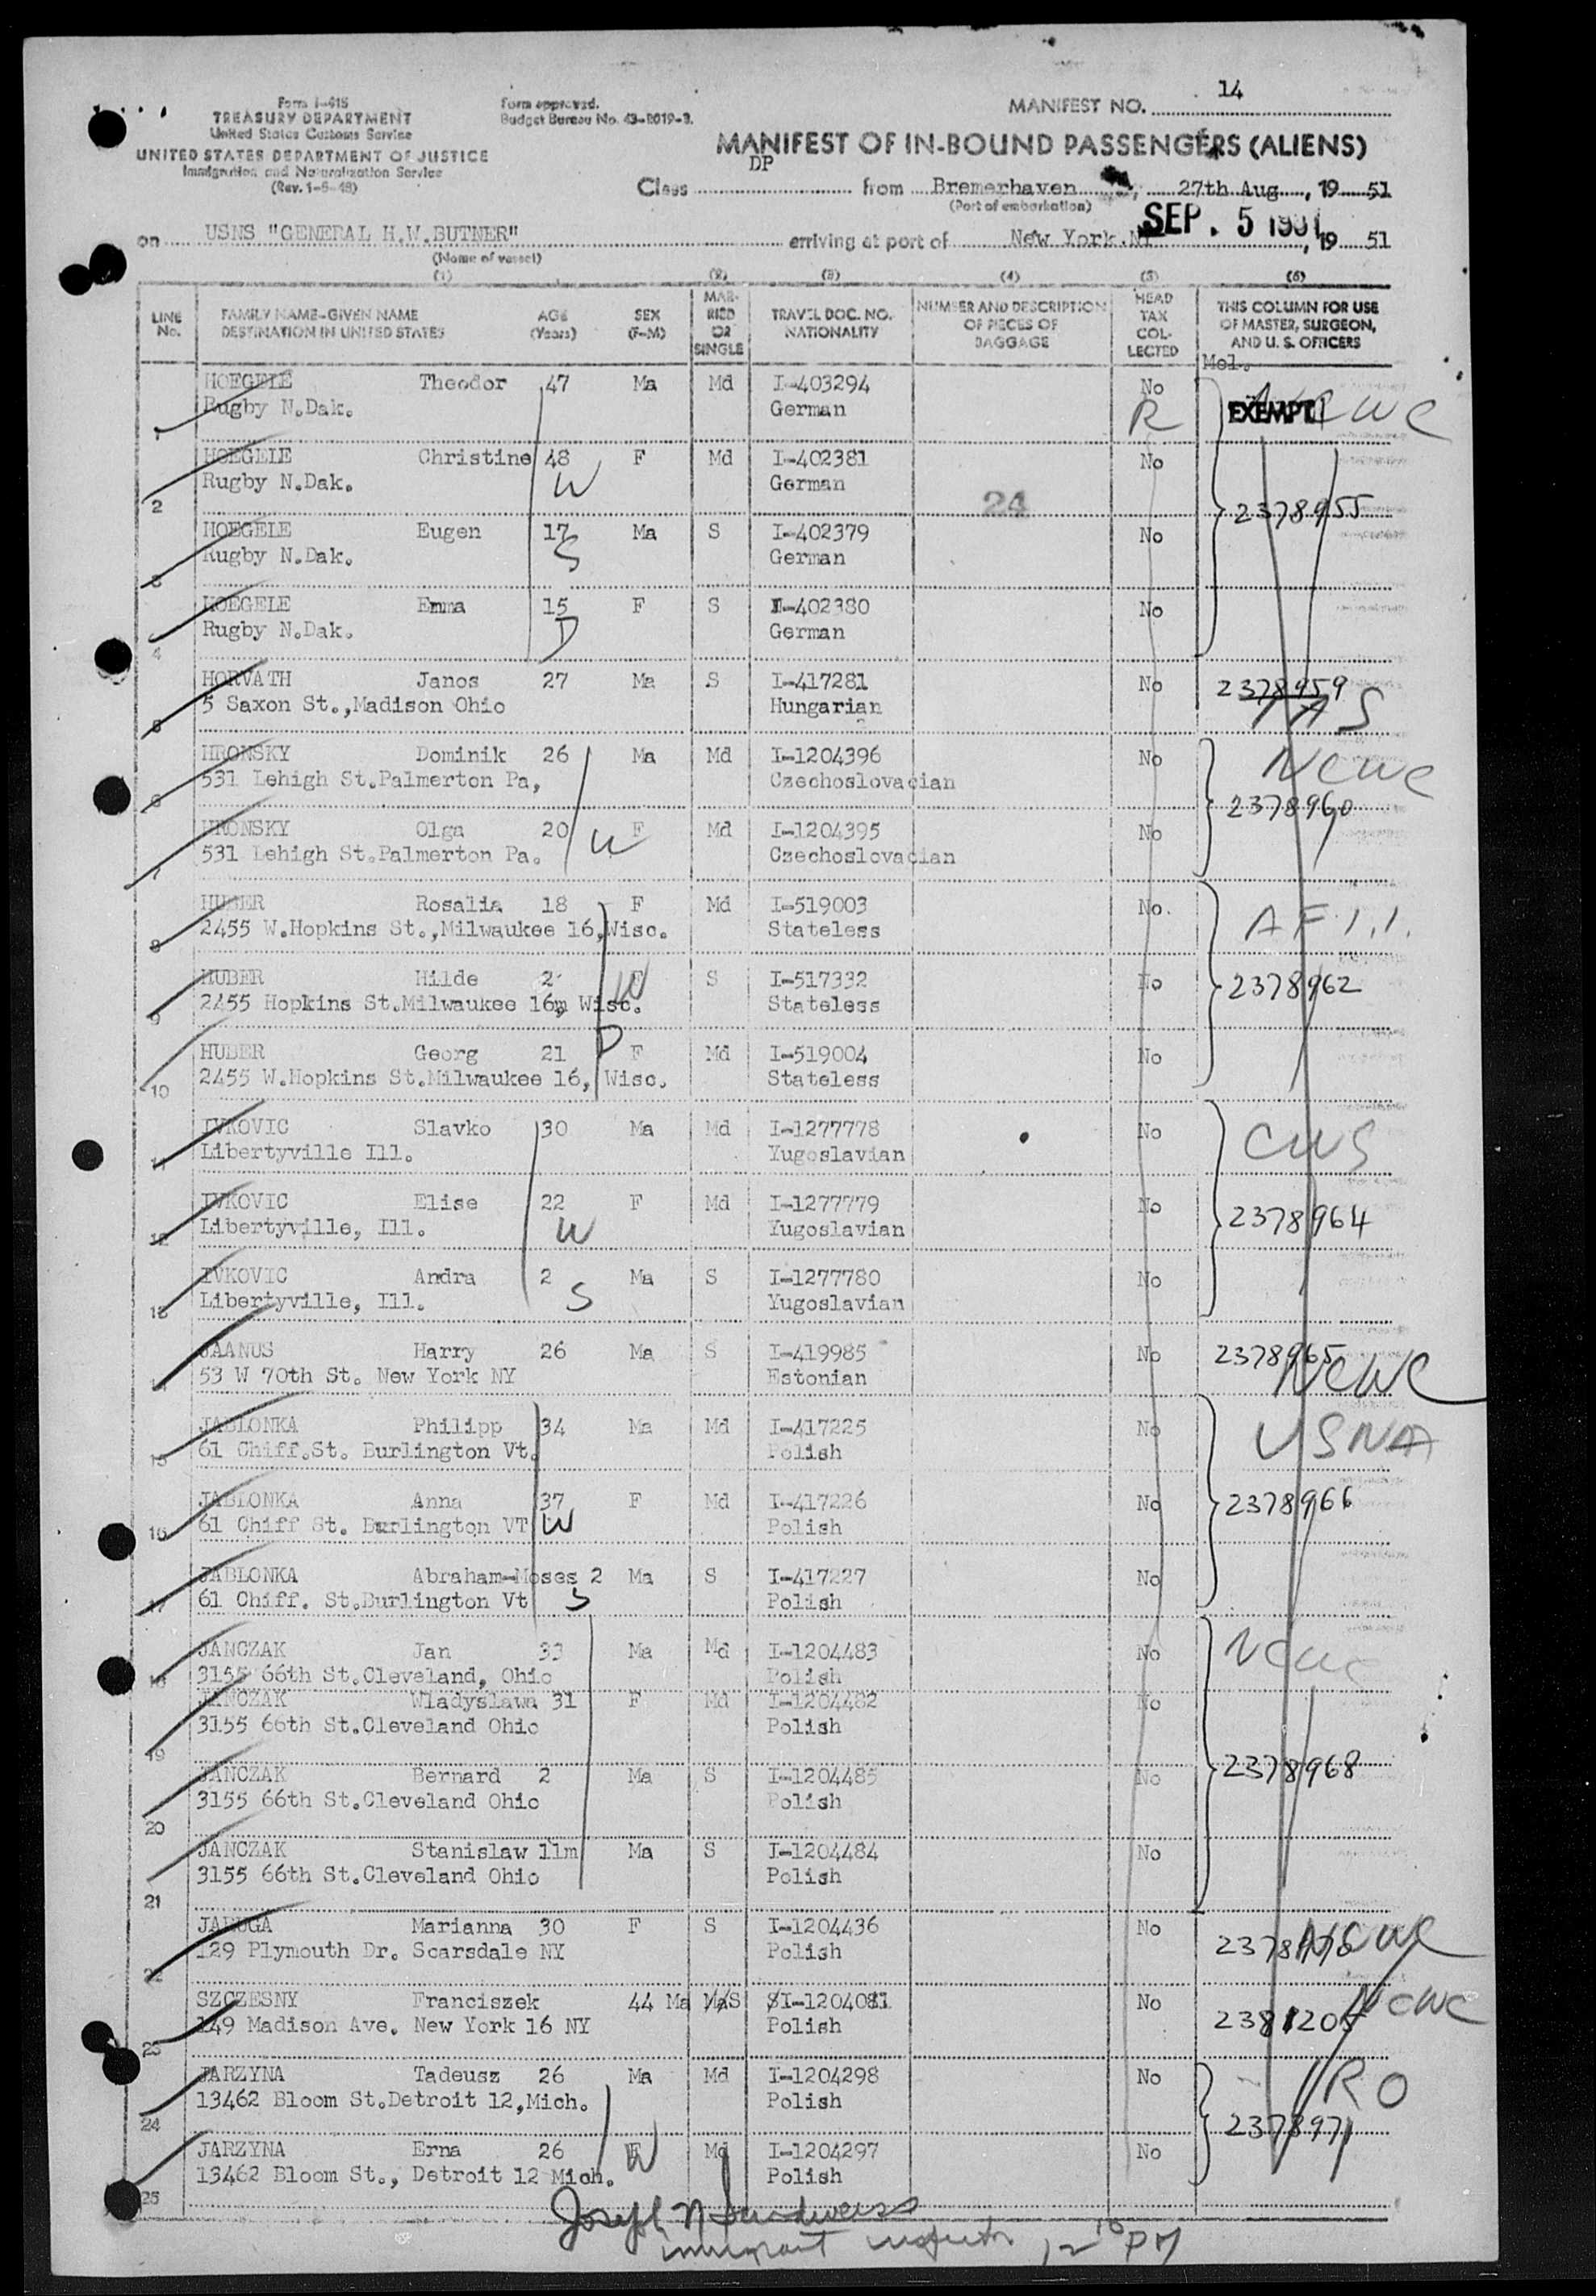 14
Form I-415
TREASURY DEPARTMENT
United States Customs Service
UNITED STATES DEPARTMENT OF JUSTICE
Immigration and Naturalization Service
(Rev. 1-5-48)
Form approved.
Budget Bureau No. 43-R019-3.
MANIFEST NO.
MANIFEST OF IN-BOUND PASSENGERS (ALIENS)
Class DP from Bremerhaven, 27th Aug, 19 51
(Port of embarkation)
SEP. 5 1951
on USNS "GENERAL H.W.BUTNER" arriving at port of New York.NY, 19 51
(Name of vessel)
(1) (2) (3) (4) (5) (6)
LINE No. FAMILY NAME-GIVEN NAME DESTINATION IN UNITED STATES AGE (Years) SEX (F-M) MARRIED OR SINGLE TRAVEL DOC. NO. NATIONALITY NUMBER AND DESCRIPTION OF PIECES OF BAGGAGE HEAD TAX COLLECTED THIS COLUMN FOR USE OF MASTER, SURGEON, AND U. S. OFFICERS
HOEGELE Theodor 47 Ma Md I-403294 No
1 Rugby N.Dak. German R EXEMPT
HOEGELE Christine 48 F Md I-402381 No
2 Rugby N.Dak. W German
24 2378955
HOEGELE Eugen 17 Ma S I-402379 No
3 Rugby N.Dak. S German
HOEGELE Emma 15 F S I-402380 No
4 Rugby N.Dak. D German
HORVATH Janos 27 Ma S I-417281 No 2378959
5 5 Saxon St.,Madison Ohio Hungarian
HRONSKY Dominik 26 Ma Md I-1204396 No NCWC
6 531 Lehigh St.Palmerton Pa, Czechoslovacian
2378960
HRONSKY Olga 20 F Md I-1204395 No
7 531 Lehigh St.Palmerton Pa. W Czechoslovacian
HUBER Rosalia 18 F Md I-519003 No
8 2455 W.Hopkins St.,Milwaukee 16,Wisc. Stateless
HUBER Hilde 2 F S I-517332 No 2378962
9 2455 Hopkins St.Milwaukee 16m Wisc. W Stateless
HUBER Georg 21 F Md I-519004 No
10 2455 W.Hopkins St.Milwaukee 16, Wisc. D Stateless
IVKOVIC Slavko 30 Ma Md I-1277778 No CWS
11 Libertyville Ill. Yugoslavian
IVKOVIC Elise 22 F Md I-1277779 No 2378964
12 Libertyville, Ill. W Yugoslavian
IVKOVIC Andra 2 Ma S I-1277780 No
13 Libertyville, Ill. S Yugoslavian
JAANUS Harry 26 Ma S I-419985 No 2378965
14 53 W 70th St. New York NY Estonian NCWC
JABLONKA Philipp 34 Ma Md I-417225 No USNA
15 61 Chiff.St. Burlington Vt. Polish
JABLONKA Anna 37 F Md I-417226 No 2378966
16 61 Chiff St. Burlington VT W Polish
JABLONKA Abraham-Moses 2 Ma S I-417227 No
17 61 Chiff. St.Burlington Vt S Polish
JANCZAK Jan 33 Ma Md I-1204483 No NCWC
18 3155 66th St.Cleveland, Ohio Polish
JANCZAK Wladyslawa 31 F Md I-1204482 No
19 3155 66th St.Cleveland Ohio Polish
JANCZAK Bernard 2 Ma S I-1204485 No 2378968
20 3155 66th St.Cleveland Ohio Polish
JANCZAK Stanislaw 11m Ma S I-1204484 No
21 3155 66th St.Cleveland Ohio Polish
JARUGA Marianna 30 F S I-1204436 No NCWC
22 129 Plymouth Dr. Scarsdale NY Polish
SZCZESNY Franciszek 44 Ma S I-1204081 No NCWC
23 149 Madison Ave. New York 16 NY Polish
JARZYNA Tadeusz 26 Ma Md I-1204298 No
24 13462 Bloom St.Detroit 12,Mich. Polish
2378971
JARZYNA Erna 26 F Md I-1204297 No
25 13462 Bloom St., Detroit 12 Mich. W Polish
Joseph N
immigrant inspector 12 10 PM